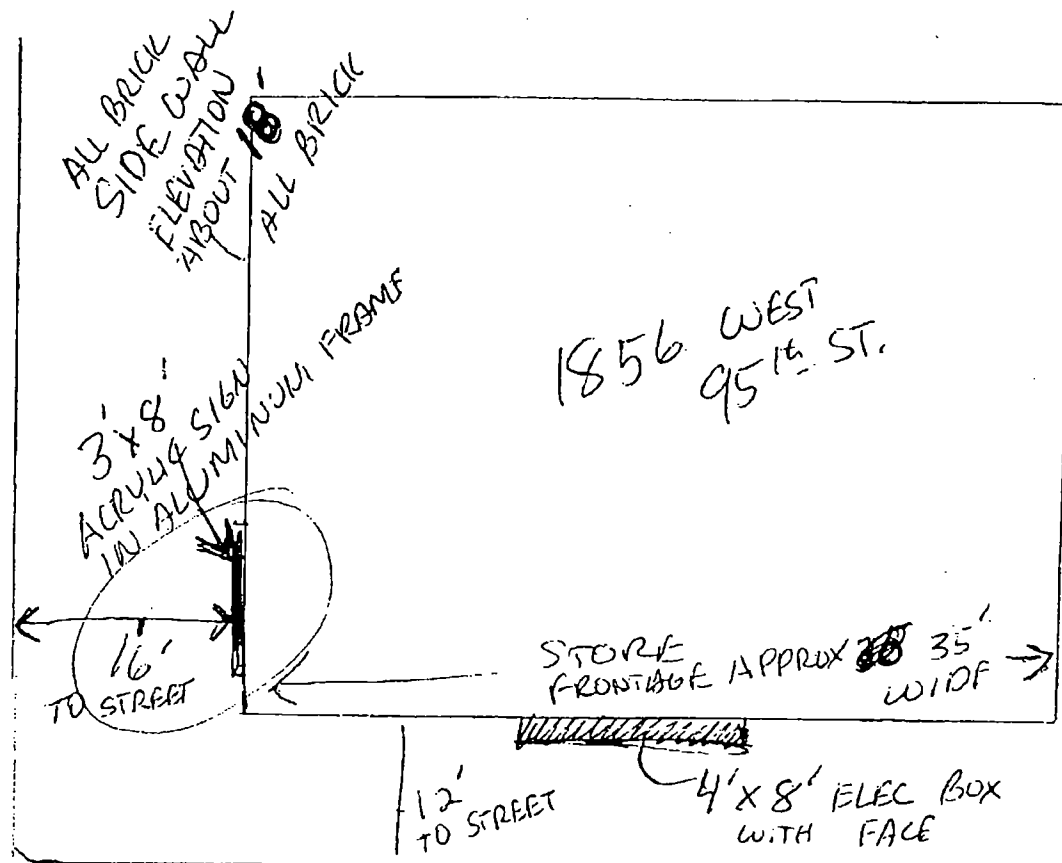 ALL BRICK
SIDE WALL
ELEVATION
ABOUT 18'
ALL BRICK
3' x 8'
ACRYLIC SIGN
IN ALUMINUM FRAME
1856 WEST
95th ST.
16'
TO STREET
STORE
FRONTAGE APPROX 35'
WIDE
12'
TO STREET
4' X 8' ELEC BOX
WITH FACE